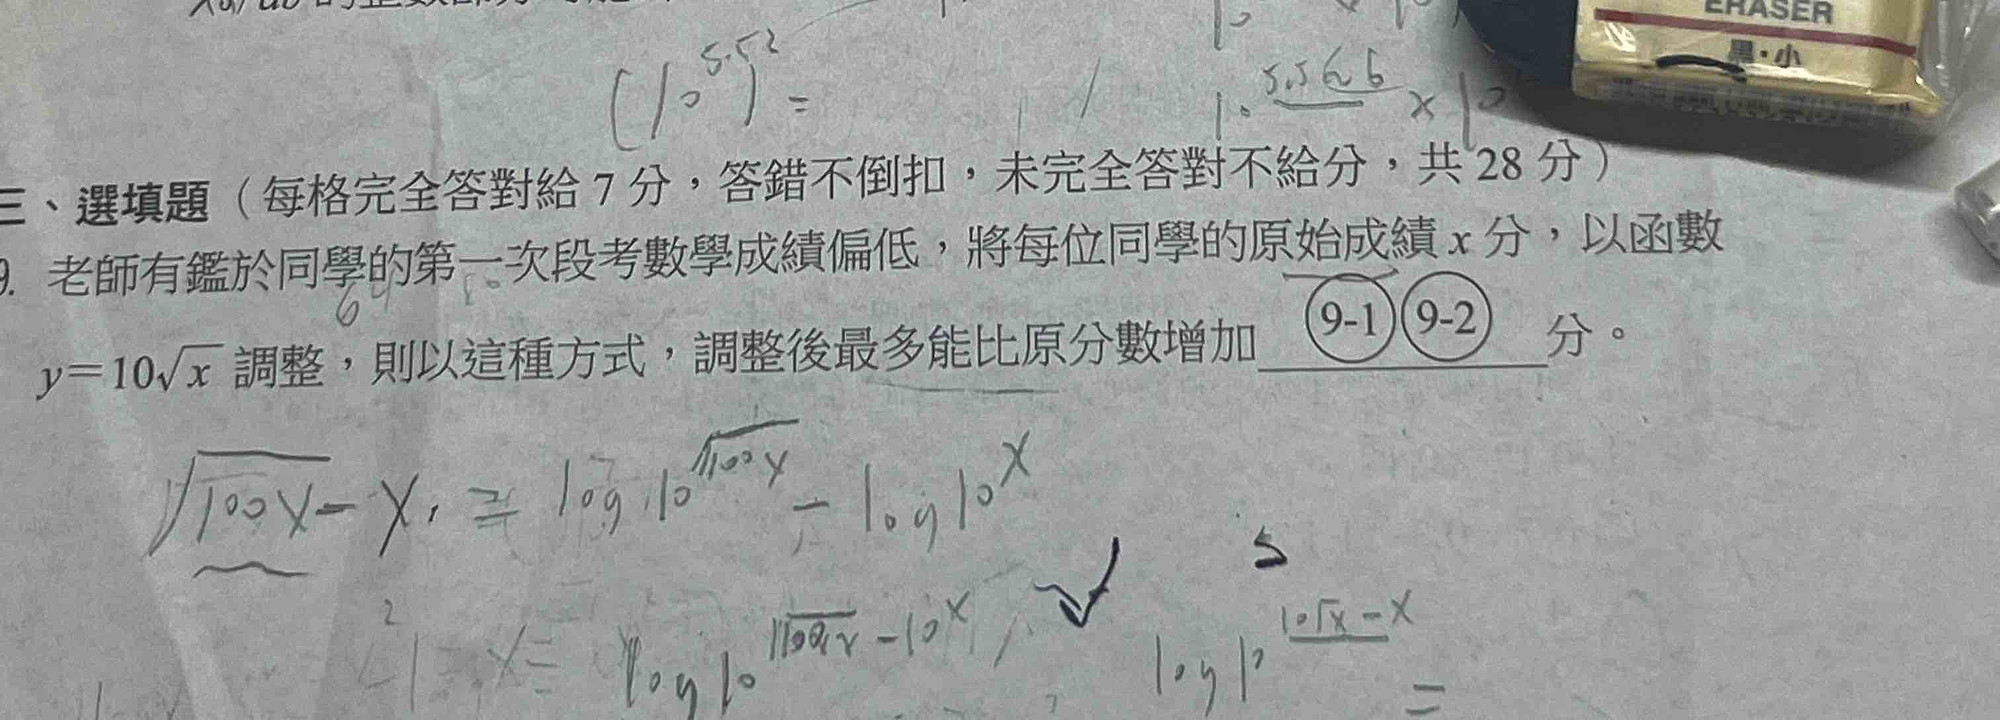 ERASER
黑・小
(10^5.5)^2 =
10^5.5666 × 10
三、選填題（每格完全答對給 7 分，答錯不倒扣，未完全答對不給分，共 28 分）
9. 老師有鑑於同學的第一次段考數學成績偏低，將每位同學的原始成績 x 分，以函數
64
y=10√x 調整，則以這種方式，調整後最多能比原分數增加 9-1 9-2 分。
√100x - x, = log 10^√100x - log 10^x
5
log 10
log 10^10√x - x =